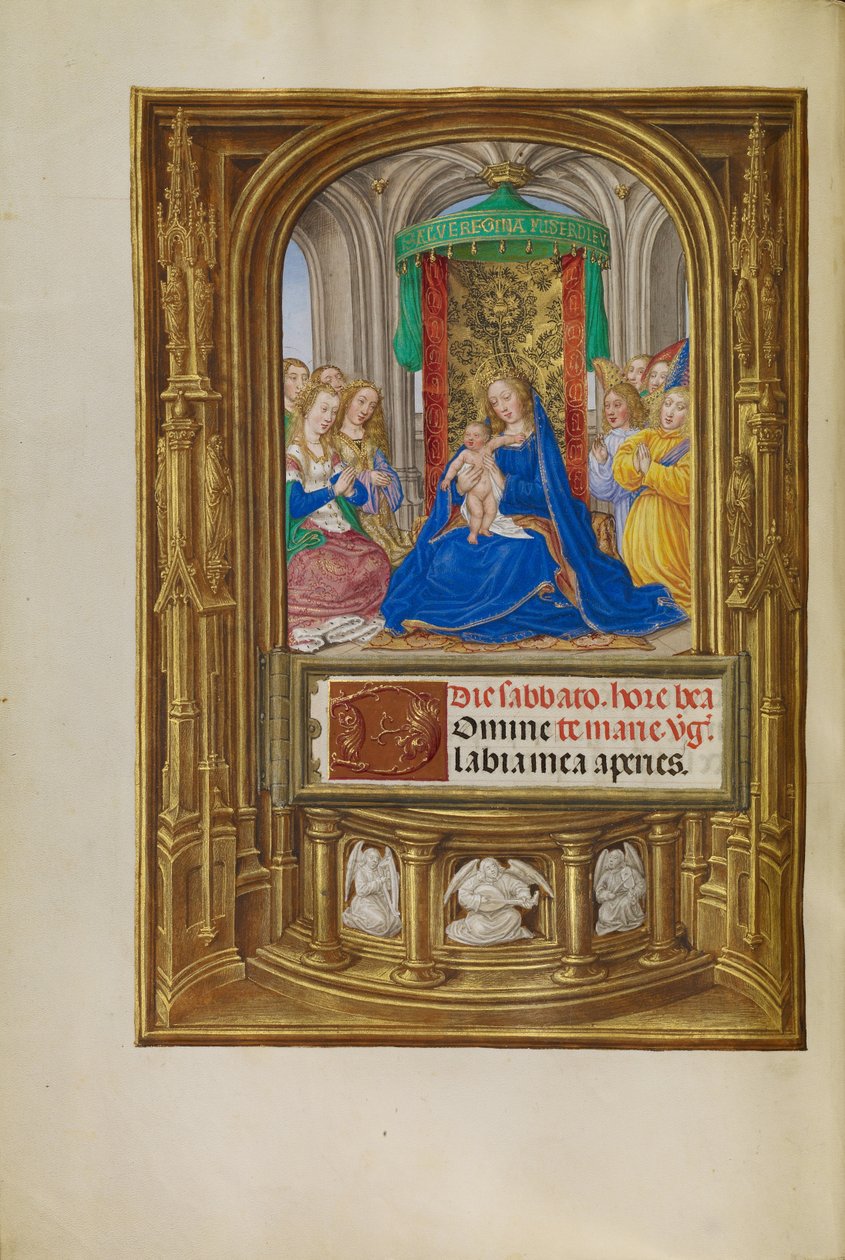 SALVE REGINA MISERDIEV
Die sabbato. hore bea
Domine te marie. v̄gˢ.
labia mea aperies.